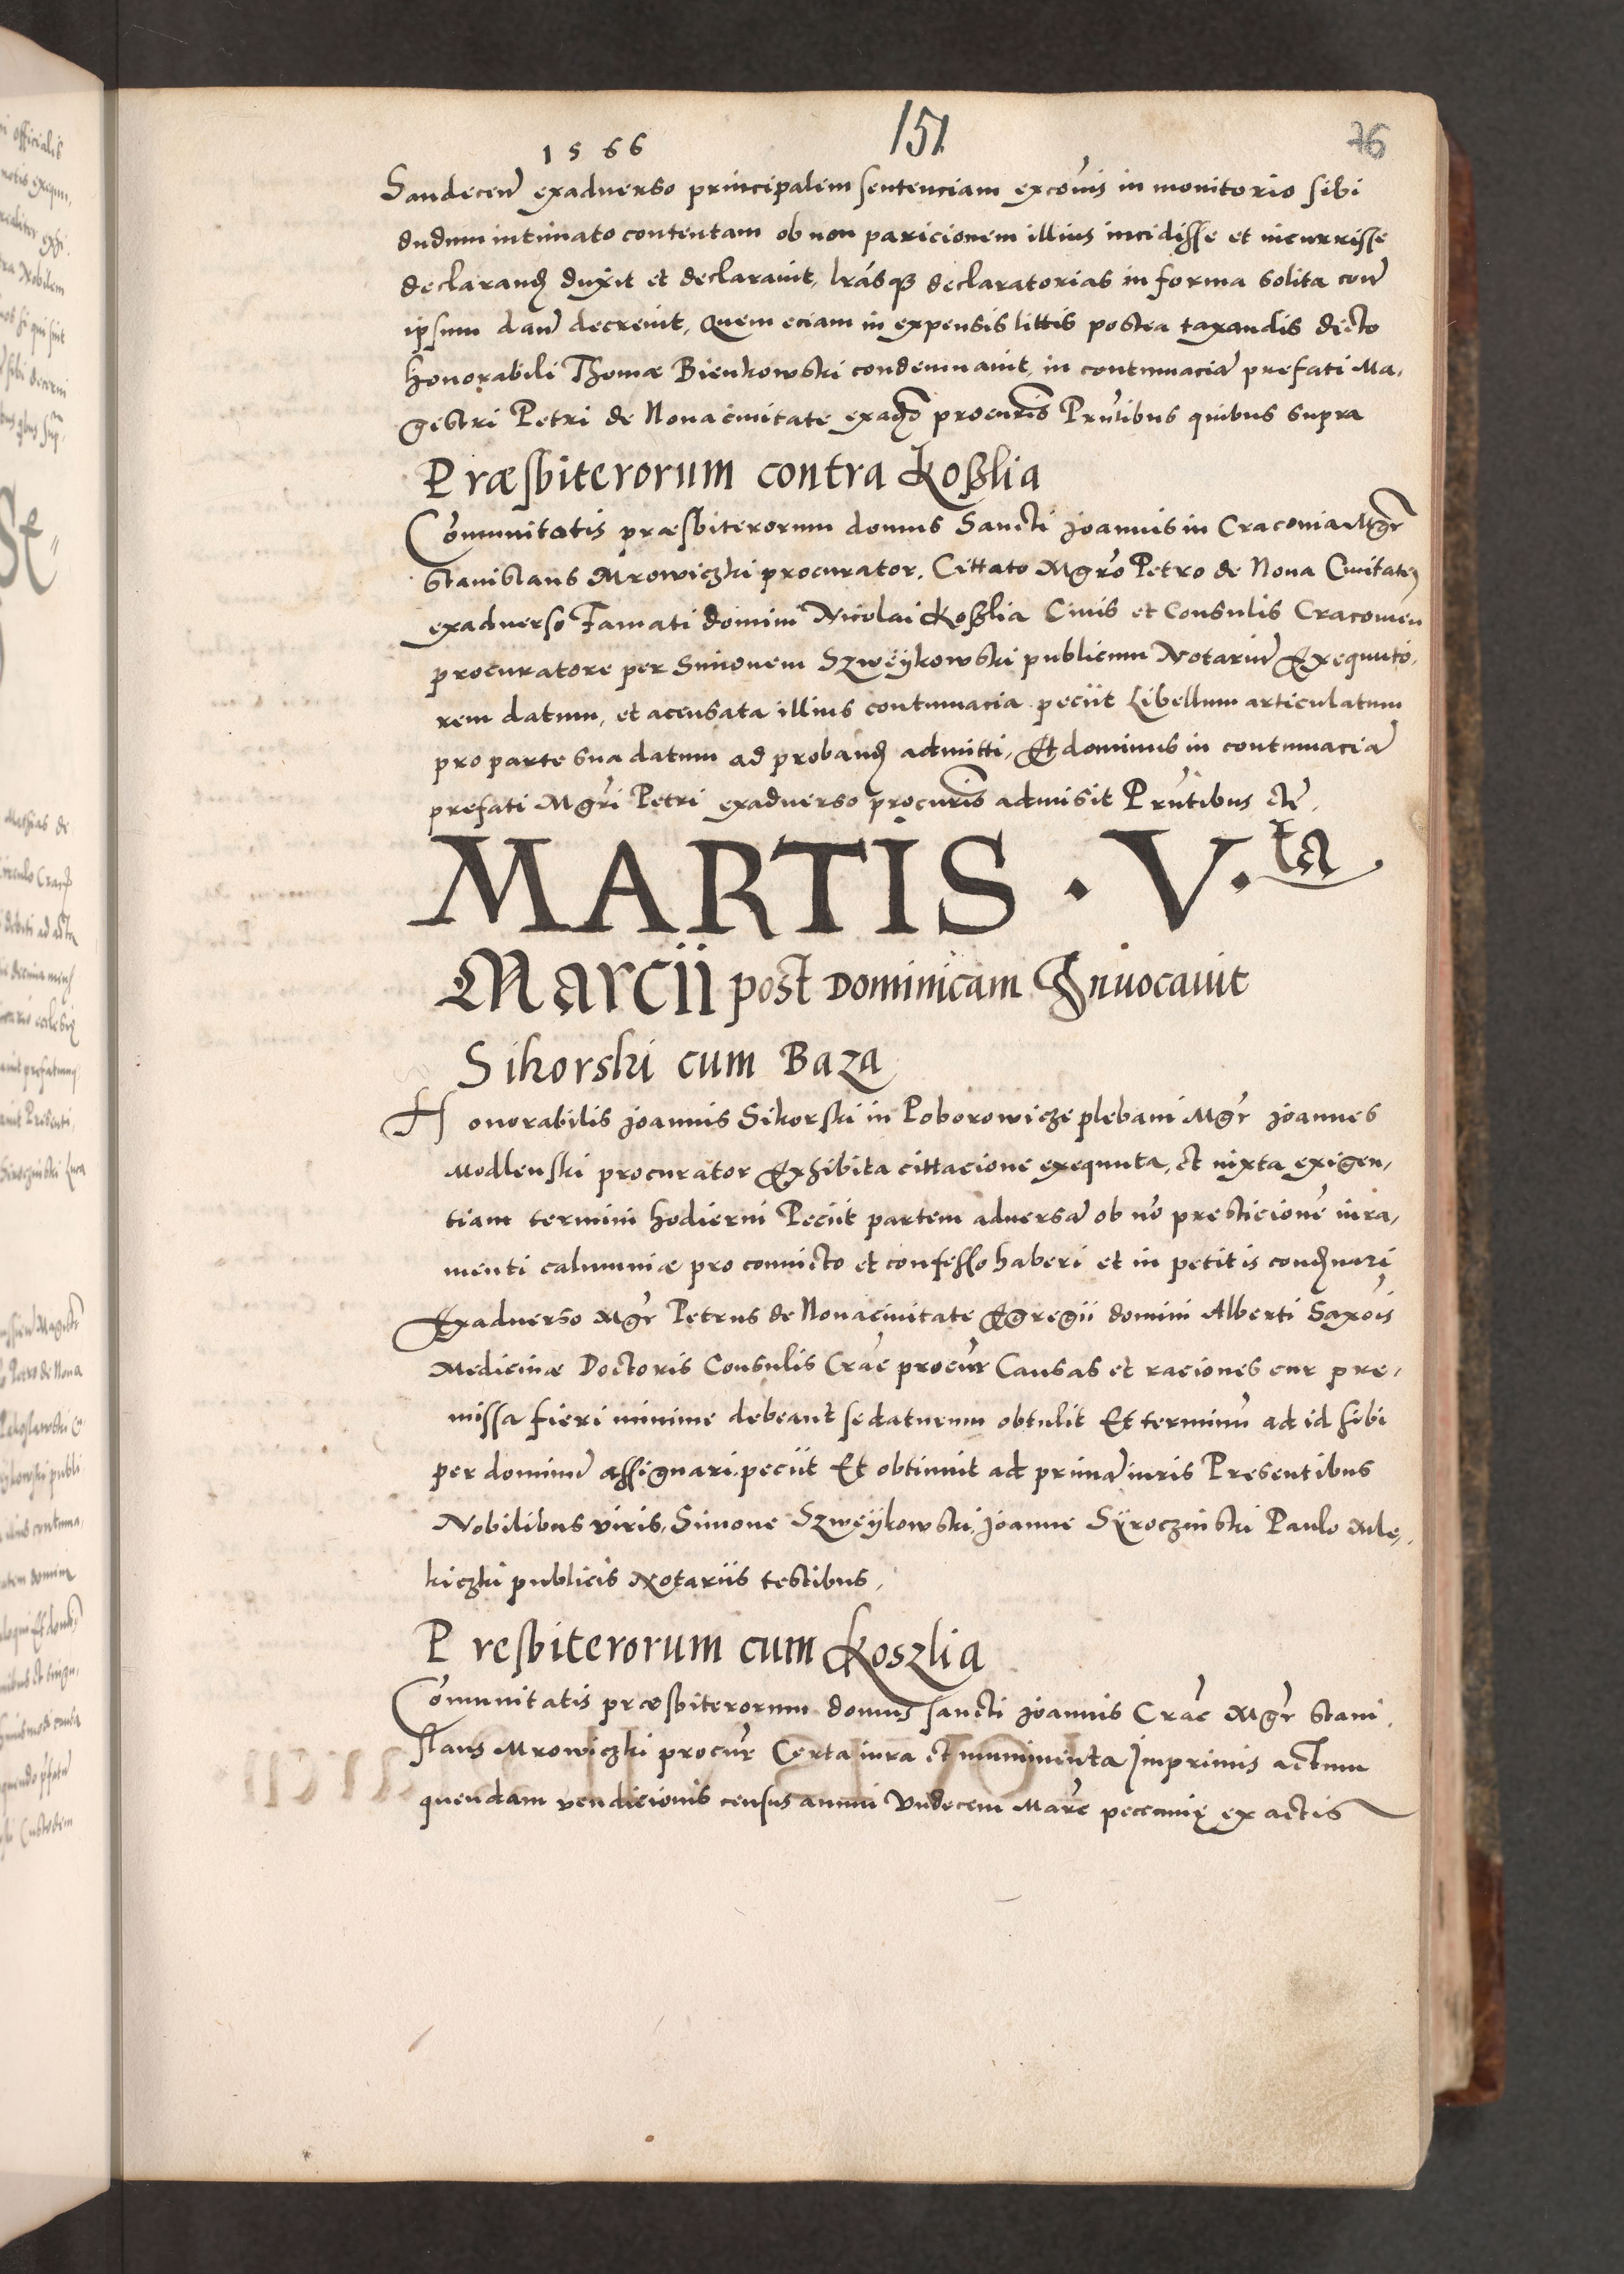 1566
151
76
Sandecen̄ exadverso principalem sentenciam excōīs in monitorio sibi
dudum intimato contentam ob non paricionem illius incidisse et incurrisse
declarand duxit et declaravit, lrásq declaratorias in forma solita con̄
ipsum dan̄ decrevit, Quem eciam in expensis littis postea taxandis dicto
Honorabili Thomæ Bienkowski condemnavit, in contumaciā prefati Ma,
gestri Petri de Nova civitate procuris Prn̄tibus quibus supra
Præsbiterorum contra Koßlia
Com̄unitatis præsbiterorum domus Sancti Joannis in Cracovia Mgr̄
Stanislaus Mrowiczki procurator, Cittato Mgr̄o Petro de Nova Civitate
exadverso Famati domini Nicolai Koßlia Civis et Consulis Cracovien
procuratore per Simonem Szwëykowski publicum Notariū Exequuto,
rem datum, et acensata illius contumacia peciit Libellum articulatum
pro parte sua datum ad proband admitti, Et dominus in contumaciā
prefati Mgr̄i Petri exadverso procuris admisit Prn̄tibus etc̄,
MARTIS · V.ta
Marcii post Dominicam Invocavit
Sikorski cum Baza
Honorabilis Joannis Sikorski in Poborowicze plebani Mgr̄ Joannes
Modlenski procurator Exhibita cittacione exequuta, et iuxta exigen,
tiam termini hodierni Peciit partem adversā ob nō presticionē iura,
menti calumniæ pro convicto et confesso haberi et in petitis condnari
Exadverso Mgr̄ Petrus de Nova civitate Egregii domini Alberti Saxōis
Medicinæ Doctoris Consulis Crac̄ procur̄ Causas et raciones cur pre,
missa fieri minime debeant se daturum obtulit Et terminū ad id sibi
per dominū assignari peciit Et obtinuit ad primā iuris Presentibus
Nobilibus viris, Simone Szwęykowski, Joanne Sÿroczinski Paulo Mle,
kiczki publicis Notariis testibus,
Presbiterorum cum Koszlia
Com̄unitatis præsbiterorum domus sancti Joannis Crac̄ Mgr̄ Stani
slaus Mrowiczki procur̄ Certa iura et munimenta Imprimis actum
quendam vendicionis census annui Undecem Marc̄ peccunię ex actis